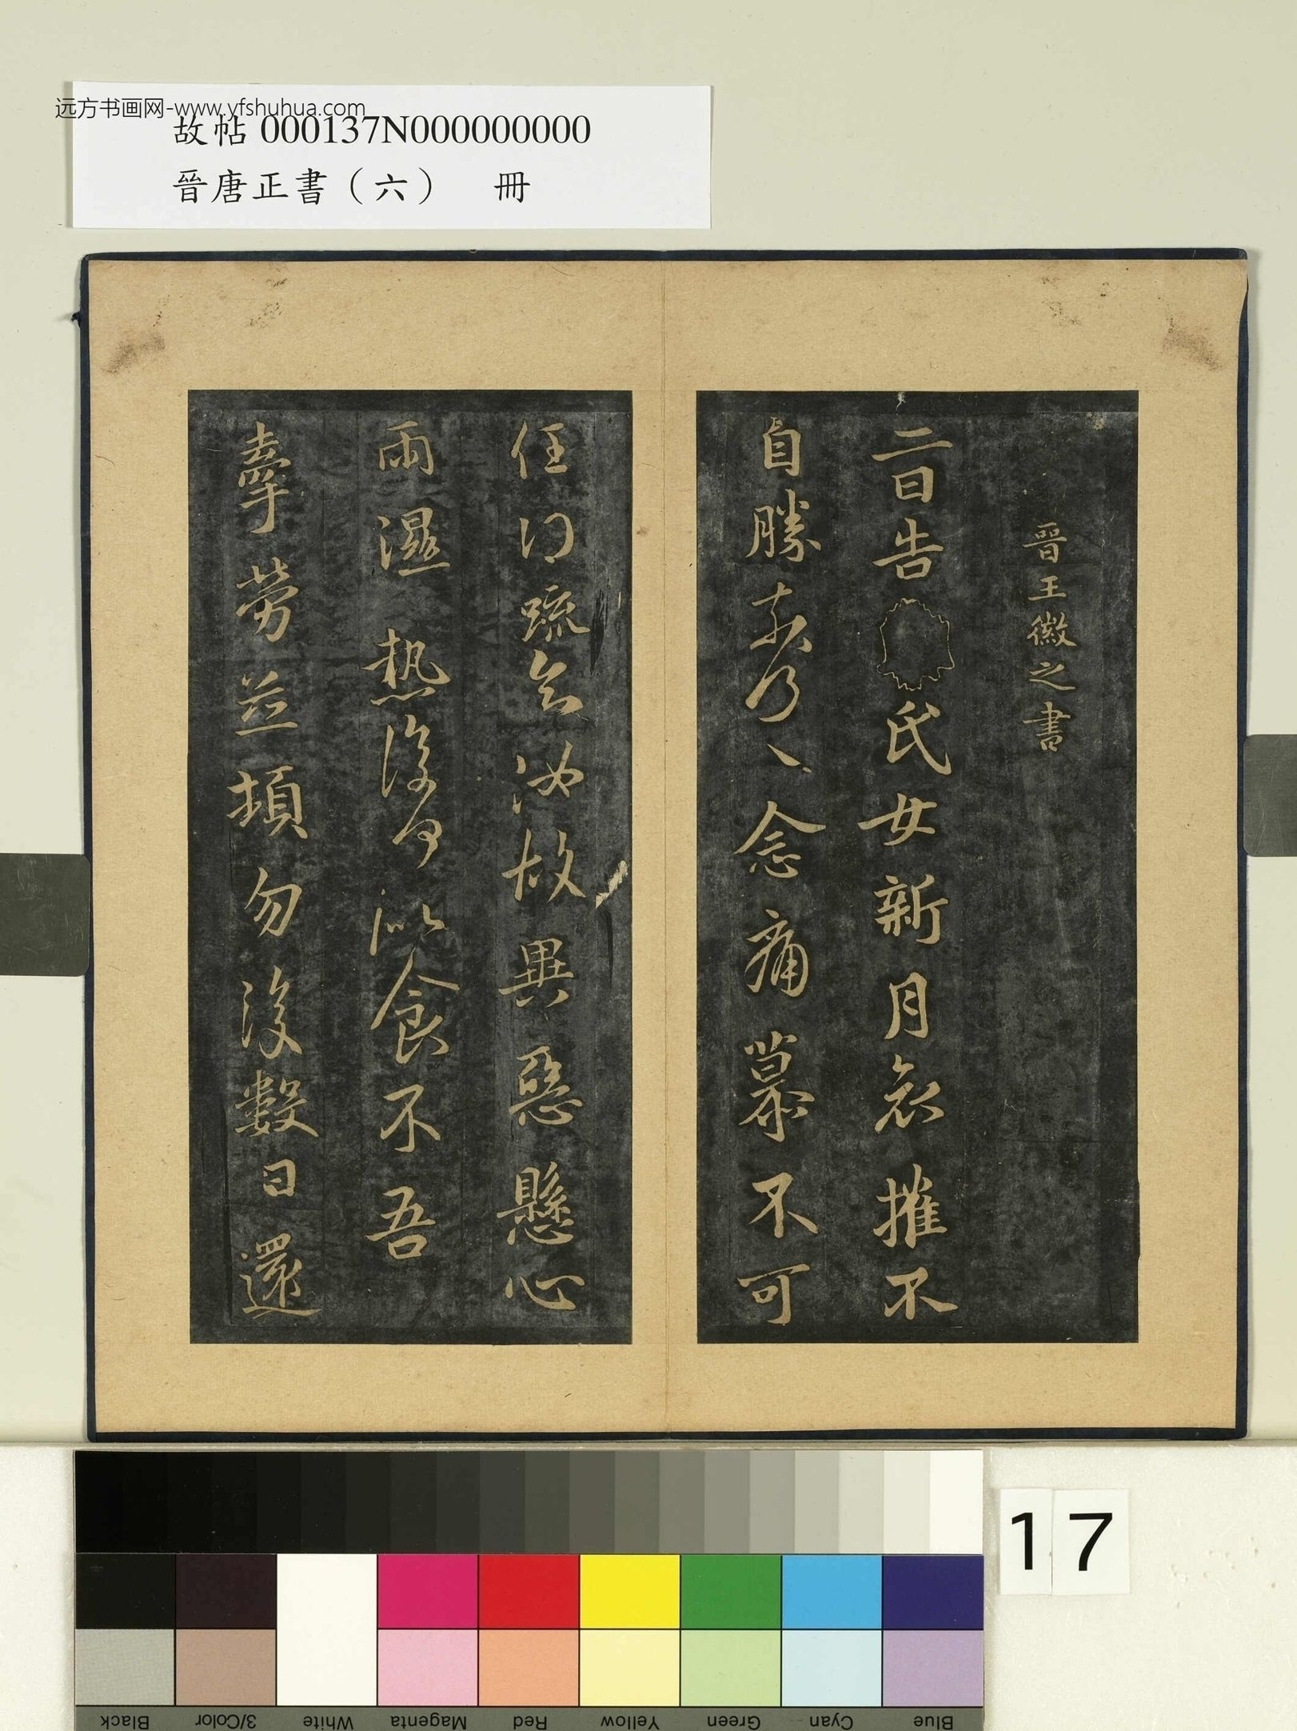 远方书画网-www.yfshuhua.com
故帖 000137N000000000
晉唐正書（六） 冊
晉王徽之書
二日告氏女新月哀摧不
自勝奈何〻念痛慕不可
任得疏知汝故異惡懸心
雨濕热復何似食不吾
牽勞並頓勿復數日還
17
Black 3/Color White Magenta Red Yellow Green Cyan Blue